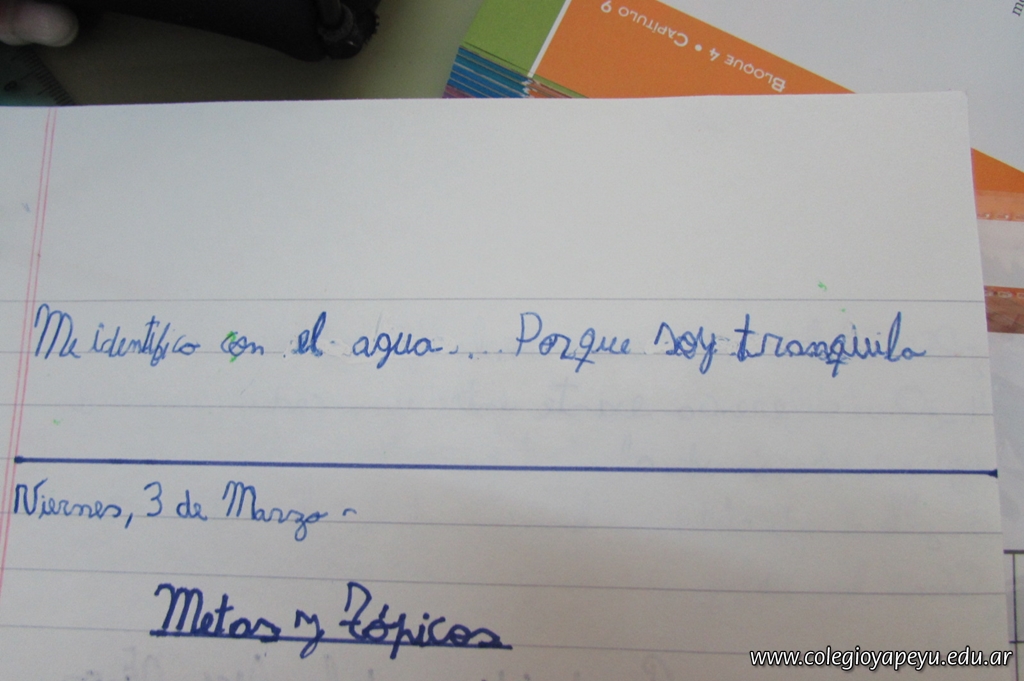 BLOQUE 4 • CAPÍTULO 9
Me identifico con el agua... Porque soy tranquila
Viernes, 3 de Marzo -
Metas y Tópicos
www.colegioyapeyu.edu.ar